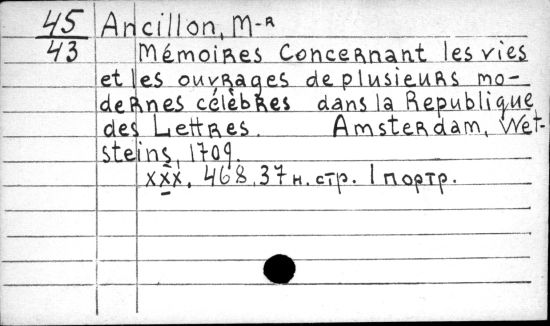 45 Ancillon, M-R
43 Mémoires Concernant les vies
et les ouvrages de plusieurs mo-
dernes célèbres dans la Republique
des Lettres. Amsterdam, Wet-
steins, 1709.
xxx, 468, 37 н. стр. 1 портр.